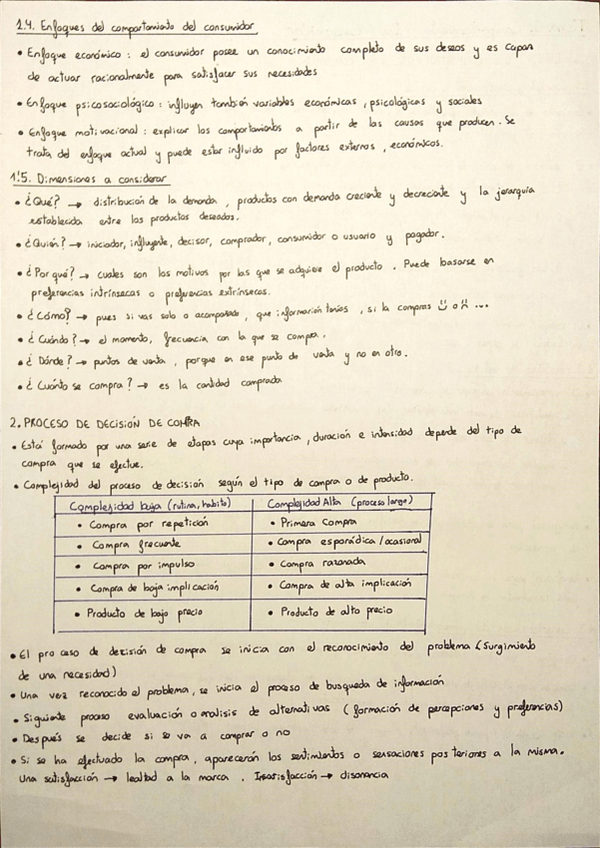 1.4. Enfoques del comportamiento del consumidor
• Enfoque económico : el consumidor posee un conocimiento completo de sus deseos y es capaz
de actuar racionalmente para satisfacer sus necesidades
• Enfoque psicosociológico : influyen también variables económicas, psicológicas y sociales
• Enfoque motivacional : explicar los comportamientos a partir de las causas que producen. Se
trata del enfoque actual y puede estar influido por factores externos, económicos.
1.5. Dimensiones a considerar
• ¿Qué? → distribución de la demanda, productos con demanda creciente y decreciente y la jerarquía
establecida entre los productos deseados.
• ¿Quién? → iniciador, influyente, decisor, comprador, consumidor o usuario y pagador.
• ¿Por qué? → cuales son los motivos por los que se adquiere el producto. Puede basarse en
preferencias intrínsecas o preferencias extrínsecas.
• ¿Cómo? → pues si vas solo o acompañado, que información tenías, si la compras :) o :( ...
• ¿Cuándo? → el momento, frecuencia con la que se compra.
• ¿Dónde? → puntos de venta, porque en ese punto de venta y no en otro.
• ¿Cuánto se compra? → es la cantidad comprada
2. PROCESO DE DECISIÓN DE COMPRA
• Está formado por una serie de etapas cuya importancia, duración e intensidad depende del tipo de
compra que se efectue.
• Complejidad del proceso de decisión según el tipo de compra o de producto.
Complejidad baja (rutina, habito) Complejidad Alta (proceso largo)
• Compra por repetición • Primera compra
• Compra frecuente • Compra esporádica / ocasional
• Compra por impulso • Compra razonada
• Compra de baja implicación • Compra de alta implicación
• Producto de bajo precio • Producto de alto precio
• El proceso de decisión de compra se inicia con el reconocimiento del problema (Surgimiento
de una necesidad)
• Una vez reconocido el problema, se inicia el proceso de busqueda de información
• Siguiente proceso evaluación o analisis de alternativas (formación de percepciones y preferencias)
• Después se decide si se va a comprar o no
• Si se ha efectuado la compra, aparecerán los sentimientos o sensaciones posteriores a la misma.
Una satisfacción → lealtad a la marca. Insatisfacción → disonancia